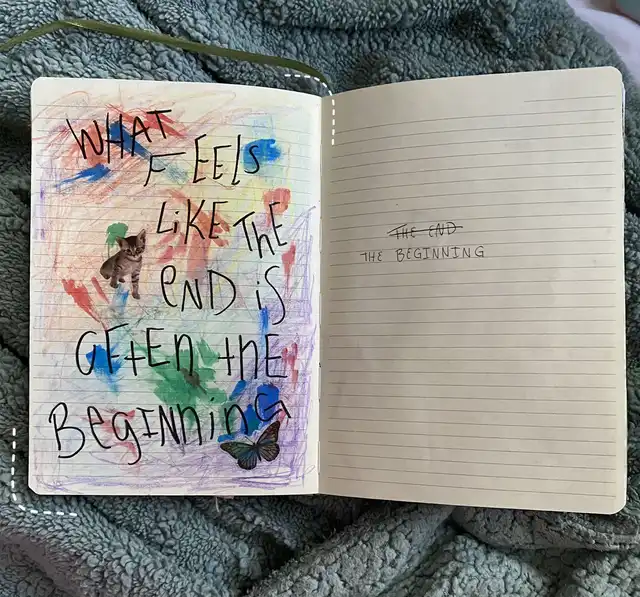 WHAT
FEELS
LiKE THE
eND iS
OFtEN thE
BegINNinG
THE END
THE BEGINNING